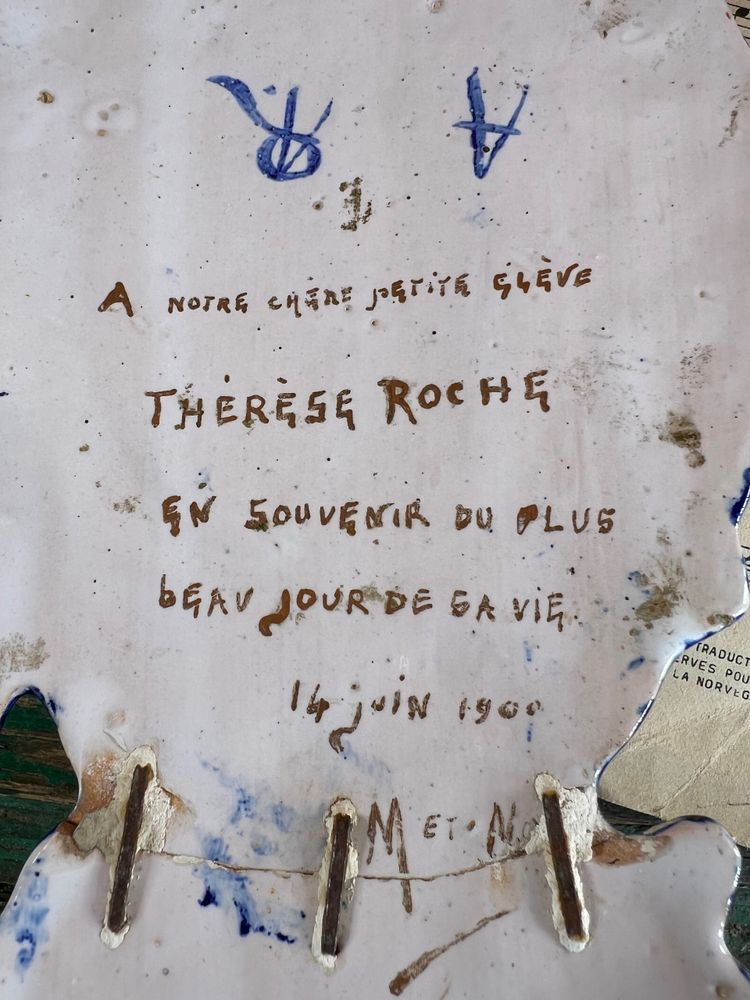 A NOTRE CHÈRE PETITE ÉLÈVE
THÉRÈSE ROCHE
EN SOUVENIR DU PLUS
bEAU JOUR DE SA VIE
14 juiN 1900
M ET
TRADUCT
ERVES POU
LA NORVÈG